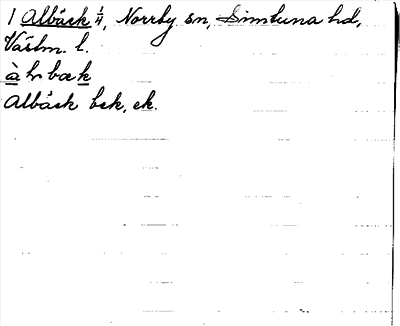 1 Albäck ¼, Norrby sn, Simtuna hd,
Västm. l.
à l bæ k
Albäck bsk, ek.